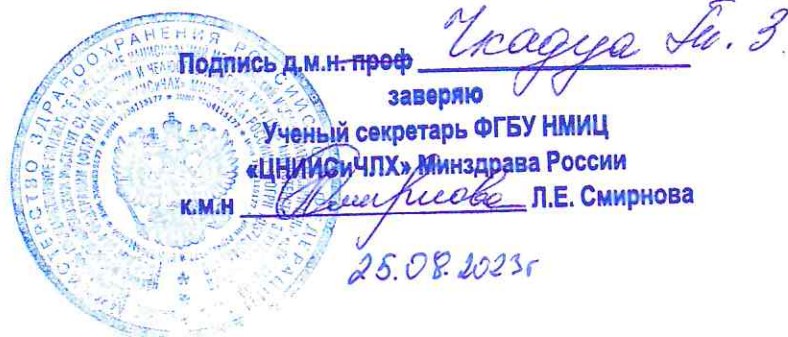 Подпись д.м.н. проф Чкадуа Т. З.
заверяю
Ученый секретарь ФГБУ НМИЦ
«ЦНИИСиЧЛХ» Минздрава России
к.м.н Смирнова Л.Е. Смирнова
25.08.2023г
МИНИСТЕРСТВО ЗДРАВООХРАНЕНИЯ РОССИЙСКОЙ ФЕДЕРАЦИИ